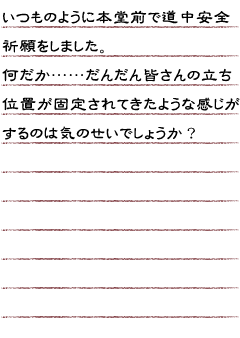 いつものように本堂前で道中安全
祈願をしました。
何だか……だんだん皆さんの立ち
位置が固定されてきたような感じが
するのは気のせいでしょうか？